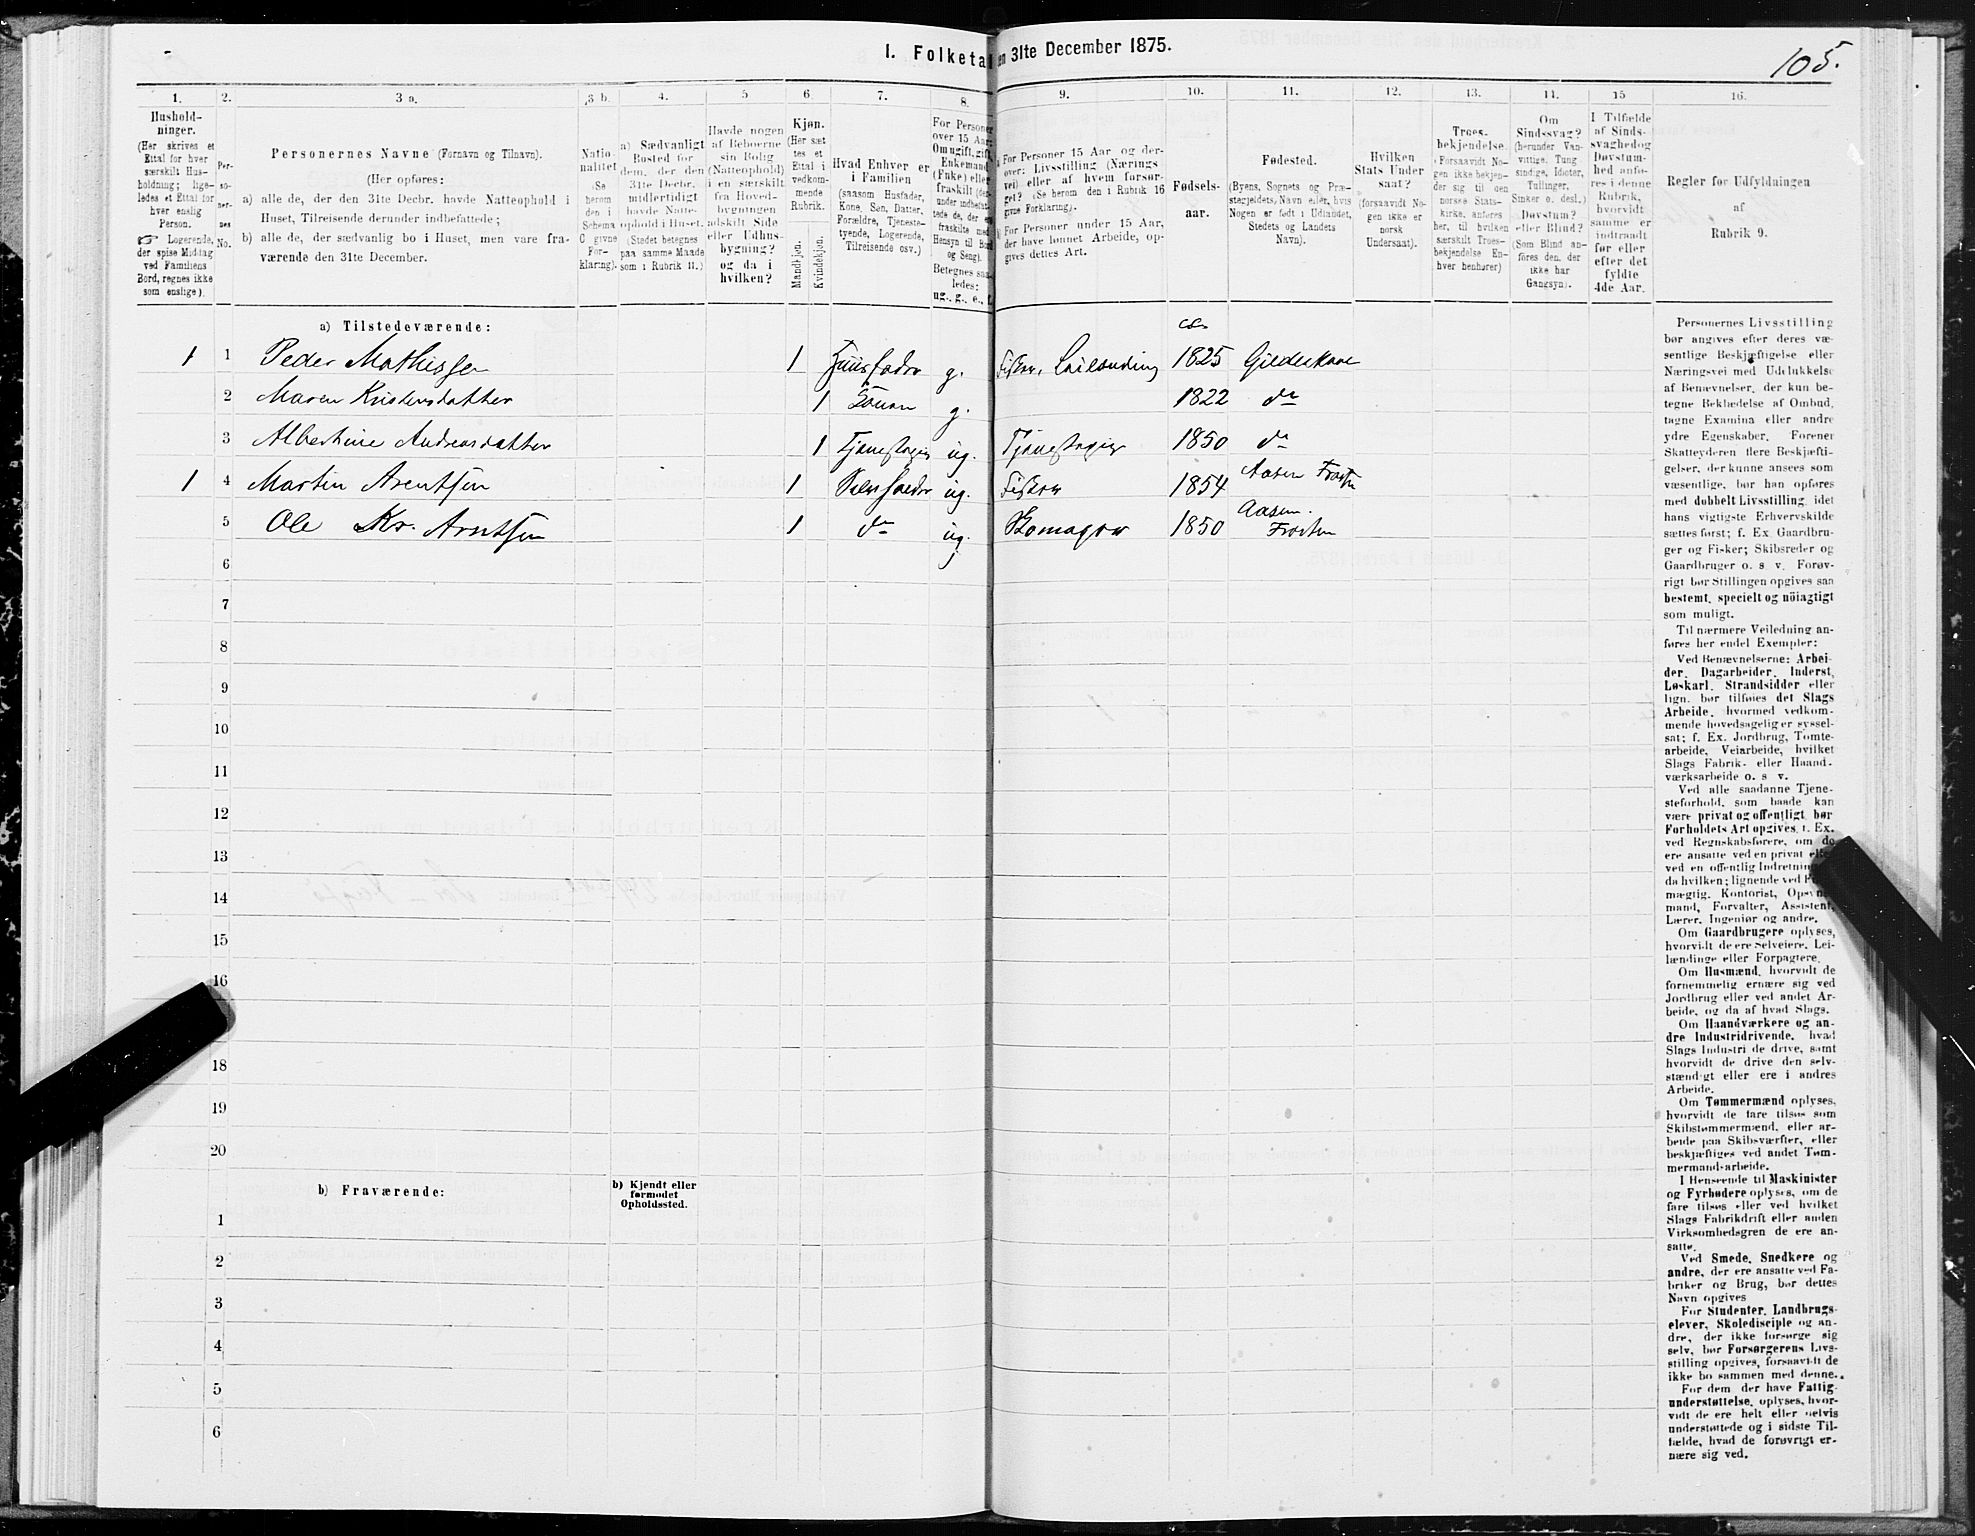 I. Folketal en 31te December 1875.
105.
1.
2.
3 a.
3 b.
4.
5
6.
7.
8.
9.
10.
11.
12.
13.
14.
15
16.
Hushold-
ninger.
(Her skrives et
Ettal for hver
særskilt Hus-
holdning; lige-
ledes et Ettal for
hver enslig
Person.
☞ Logerende,
der spise Middag
ved Familiens
Bord, regnes ikke
som enslige).
Per-
so-
ner-
nes
No.
Personernes Navne (Fornavn og Tilnavn).
(Her opføres:
a) alle de, der den 31te Decbr. havde Natteophold i
Huset, Tilreisende derunder indbefattede;
b) alle de, der sædvanlig bo i Huset, men vare fra-
værende den 31te December.
Natio-
nalitet
(Se
herom
den i
Schema
C givne
For-
klaring).
a) Sædvanligt
Bosted for
dem, der den
31te Decbr.
midlertidigt
havde Natte-
ophold i Huset.
(Stedet betegnes
paa samme Maade
som i Rubrik 11.)
Havde nogen
af Beboerne
sin Bolig
(Natteophold)
i en særskilt
fra Hoved-
bygningen
adskilt Side
eller Udhus-
bygning?
og da i
hvilken?
Kjøn.
(Her sæt
tes et
Ettal i
vedkom-
mende
Rubrik.
Mandkjøn.
Kvindekjøn.
Hvad Enhver er
i Familien
(saasom Husfader,
Kone, Søn, Datter,
Forældre, Tjeneste-
tyende, Logerende,
Tilreisende osv.)
For Personer
over 15 Aar
Om ugift, gift,
Enkemand
(Enke) eller
fraskilt (der-
under indbefat-
tede de, der ere
fraskilte med
Hensyn til Bord
og Seng).
Betegnes saa-
ledes:
ug., g., e., f.
For Personer 15 Aar og der-
over: Livsstilling (Nærings-
vei) eller af hvem forsør-
get? (Se herom den i Rubrik 16
givne Forklaring).
For Personer under 15 Aar,
der have lønnet Arbeide, op-
gives dettes Art.
Fødsels-
aar.
Fødested.
(Byens, Sognets og Præ-
stegjeldets, Navn eller, hvis
Nogen er født i Udlandet,
Stedets og Landets
Navn).
Hvilken
Stats Under
saat?
(forsaavidt No-
gen ikke er
norsk
Undersaat).
Troes-
bekjendelse.
(Forsaavidt No-
gen ikke bekjen-
der sig til den
norske Stats-
kirke, anføres
her, til hvilken
særskilt Troes-
bekjendelse En-
hver henhører)
Om
Sindssvag?
(herunder Van-
vittige, Tung
sindige, Idioter,
Tullinger,
Sinker o. desl.)
Døvstum?
eller Blind?
(Som Blind an-
føres den, der
ikke har
Gangsyn).
I Tilfælde
af Sinds-
svaghed og
Døvstum-
hed anfø-
res i denne
Rubrik,
hvorvidt
samme er
indtraadt
før eller
efter det
fyldte
4de Aar.
Regler for Udfyldningen
af
Rubrik 9.
a) Tilstedeværende:
1 1 Peder Mathissen 1 Huusfader g. Fisker, Leilending 1825 Gildeskaal
2 Maren Kristensdatter 1 Konen g. 1822 do
3 Albertine Andreasdatter 1 Tjenestepige ug. Tjenestepige 1850 do
1 4 Martin Arentsen 1 ug. Fisker 1854 Aasen Frosten
5 Ole Kr. Arntsen 1 do ug. Skomager 1850 Aasen. Frosten
6
7
8
9
10
11
12
13
14
15
16
18
19
20
b) Fraværende:
b) Kjendt eller
formodet
Opholdssted.
1
2
3
4
5
6
Personernes Livsstilling
bør angives efter deres væ-
sentlige Beskjæftigelse eller
Næringsvei med Udelukkelse
af Benævnelser, der kun be-
tegne Beklædelse af Ombud,
tagne Examina eller andre
ydre Egenskaber. Forener
Skatteyderen flere Beskjæfti-
gelser, der kunne ansees som
væsentlige, bør han opføres
med dobbelt Livsstilling, idet
hans vigtigste Erhvervskilde
sættes først; f. Ex. Gaardbru-
ger og Fisker; Skibsreder og
Gaardbruger o. s v. Forøv-
rigt bør Stillingen opgives saa
bestemt, specielt og nöiagtigt
som muligt.
Til nærmere Veiledning an-
føres her endel Exempler:
Ved Benævnelserne: Arbei-
der, Dagarbeider, Inderst,
Løskarl, Strandsidder eller
lign. bør tilføies det Slags
Arbeide, hvormed vedkom-
mende hovedsagelig er syssel-
sat; f. Ex. Jordbrug, Tomte-
arbeide, Veiarbeide, hvilket
Slags Fabrik- eller Haand-
værksarbeide o. s v.
Ved alle saadanne Tjene-
steforhold, som baade kan
være privat og offentligt, bør
Forholdets Art opgives, f. Ex.
ved Regnskabsførere, om de
ere ansatte ved en privat eller
ved en offentlig Indretning
da hvilken; lignende ved
mægtig, Kontorist,
mand, Forvalter, Assistent,
Lærer, Ingeniør og andre.
Om Gaardbrugere oplyses,
hvorvidt de ere Selveiere, Lei-
lændinge eller Forpagtere.
Om Husmænd, hvorvidt de
fornemmelig ernære sig ved
Jordbrug eller ved andet Ar-
beide, og da af hvad Slags.
Om Haandværkere og an-
dre Industridrivende, hvad
Slags Industri de drive, samt
hvorvidt de drive den selv-
stændigt eller ere i andres
Arbeide.
Om Tømmermænd oplyses,
hvorvidt de fare tilsøs som
Skibstømmermænd, eller ar-
beide paa Skibsværfter, eller
beskjæftiges ved andet Tøm-
mermandsarbeide.
I Henseende til Maskinister
og Fyrbødere oplyses, om de
fare tilsøs eller ved hvilket
Slags Fabrikdrift eller anden
Virksomhedsgren de ere an-
satte.
Ved Smede, Snedkere og
andre, der ere ansatte ved Fa-
briker og Brug, bør dettes
Navn opgives
For Studenter, Landbrugs-
elever, Skoledisciple og an-
dre, der ikke forsørge sig
selv, bør Forsørgerens Livs-
stilling opgives, forsaavidt de
ikke bo sammen med denne.
For dem, der have Fattig-
understøttelse, oplyses, hvor-
vidt de ere helt eller delvis
understøttede og i sidste Til-
fælde, hvad de forøvrigt er-
nære sig ved.